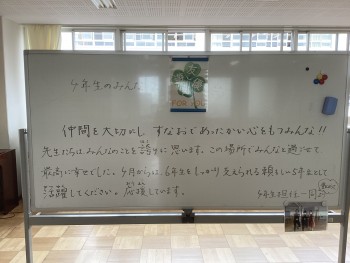 4年生のみんな
FOR YOU
仲間を大切にし、すなおであったかい心をもつみんな!!
先生たちは、みんなのことを誇りに思います。この場所でみんなと過ごせて
最高に幸せでした。4月からは、6年生をしっかり支えられる頼もしい5年生として
活躍してください。応援しています。
4年生担任一同